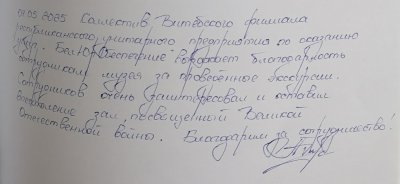 01.05.2025 Коллектив Витебского филиала
республиканского унитарного предприятия по оказанию
услуг "БелЮрОбеспечение" выражает благодарность
сотрудникам музея за проведённые экскурсии.
Сотрудников очень заинтересовал и оставил
впечатление зал, посвященный Великой
Отечественной войны. Благодарим за сотрудничество!